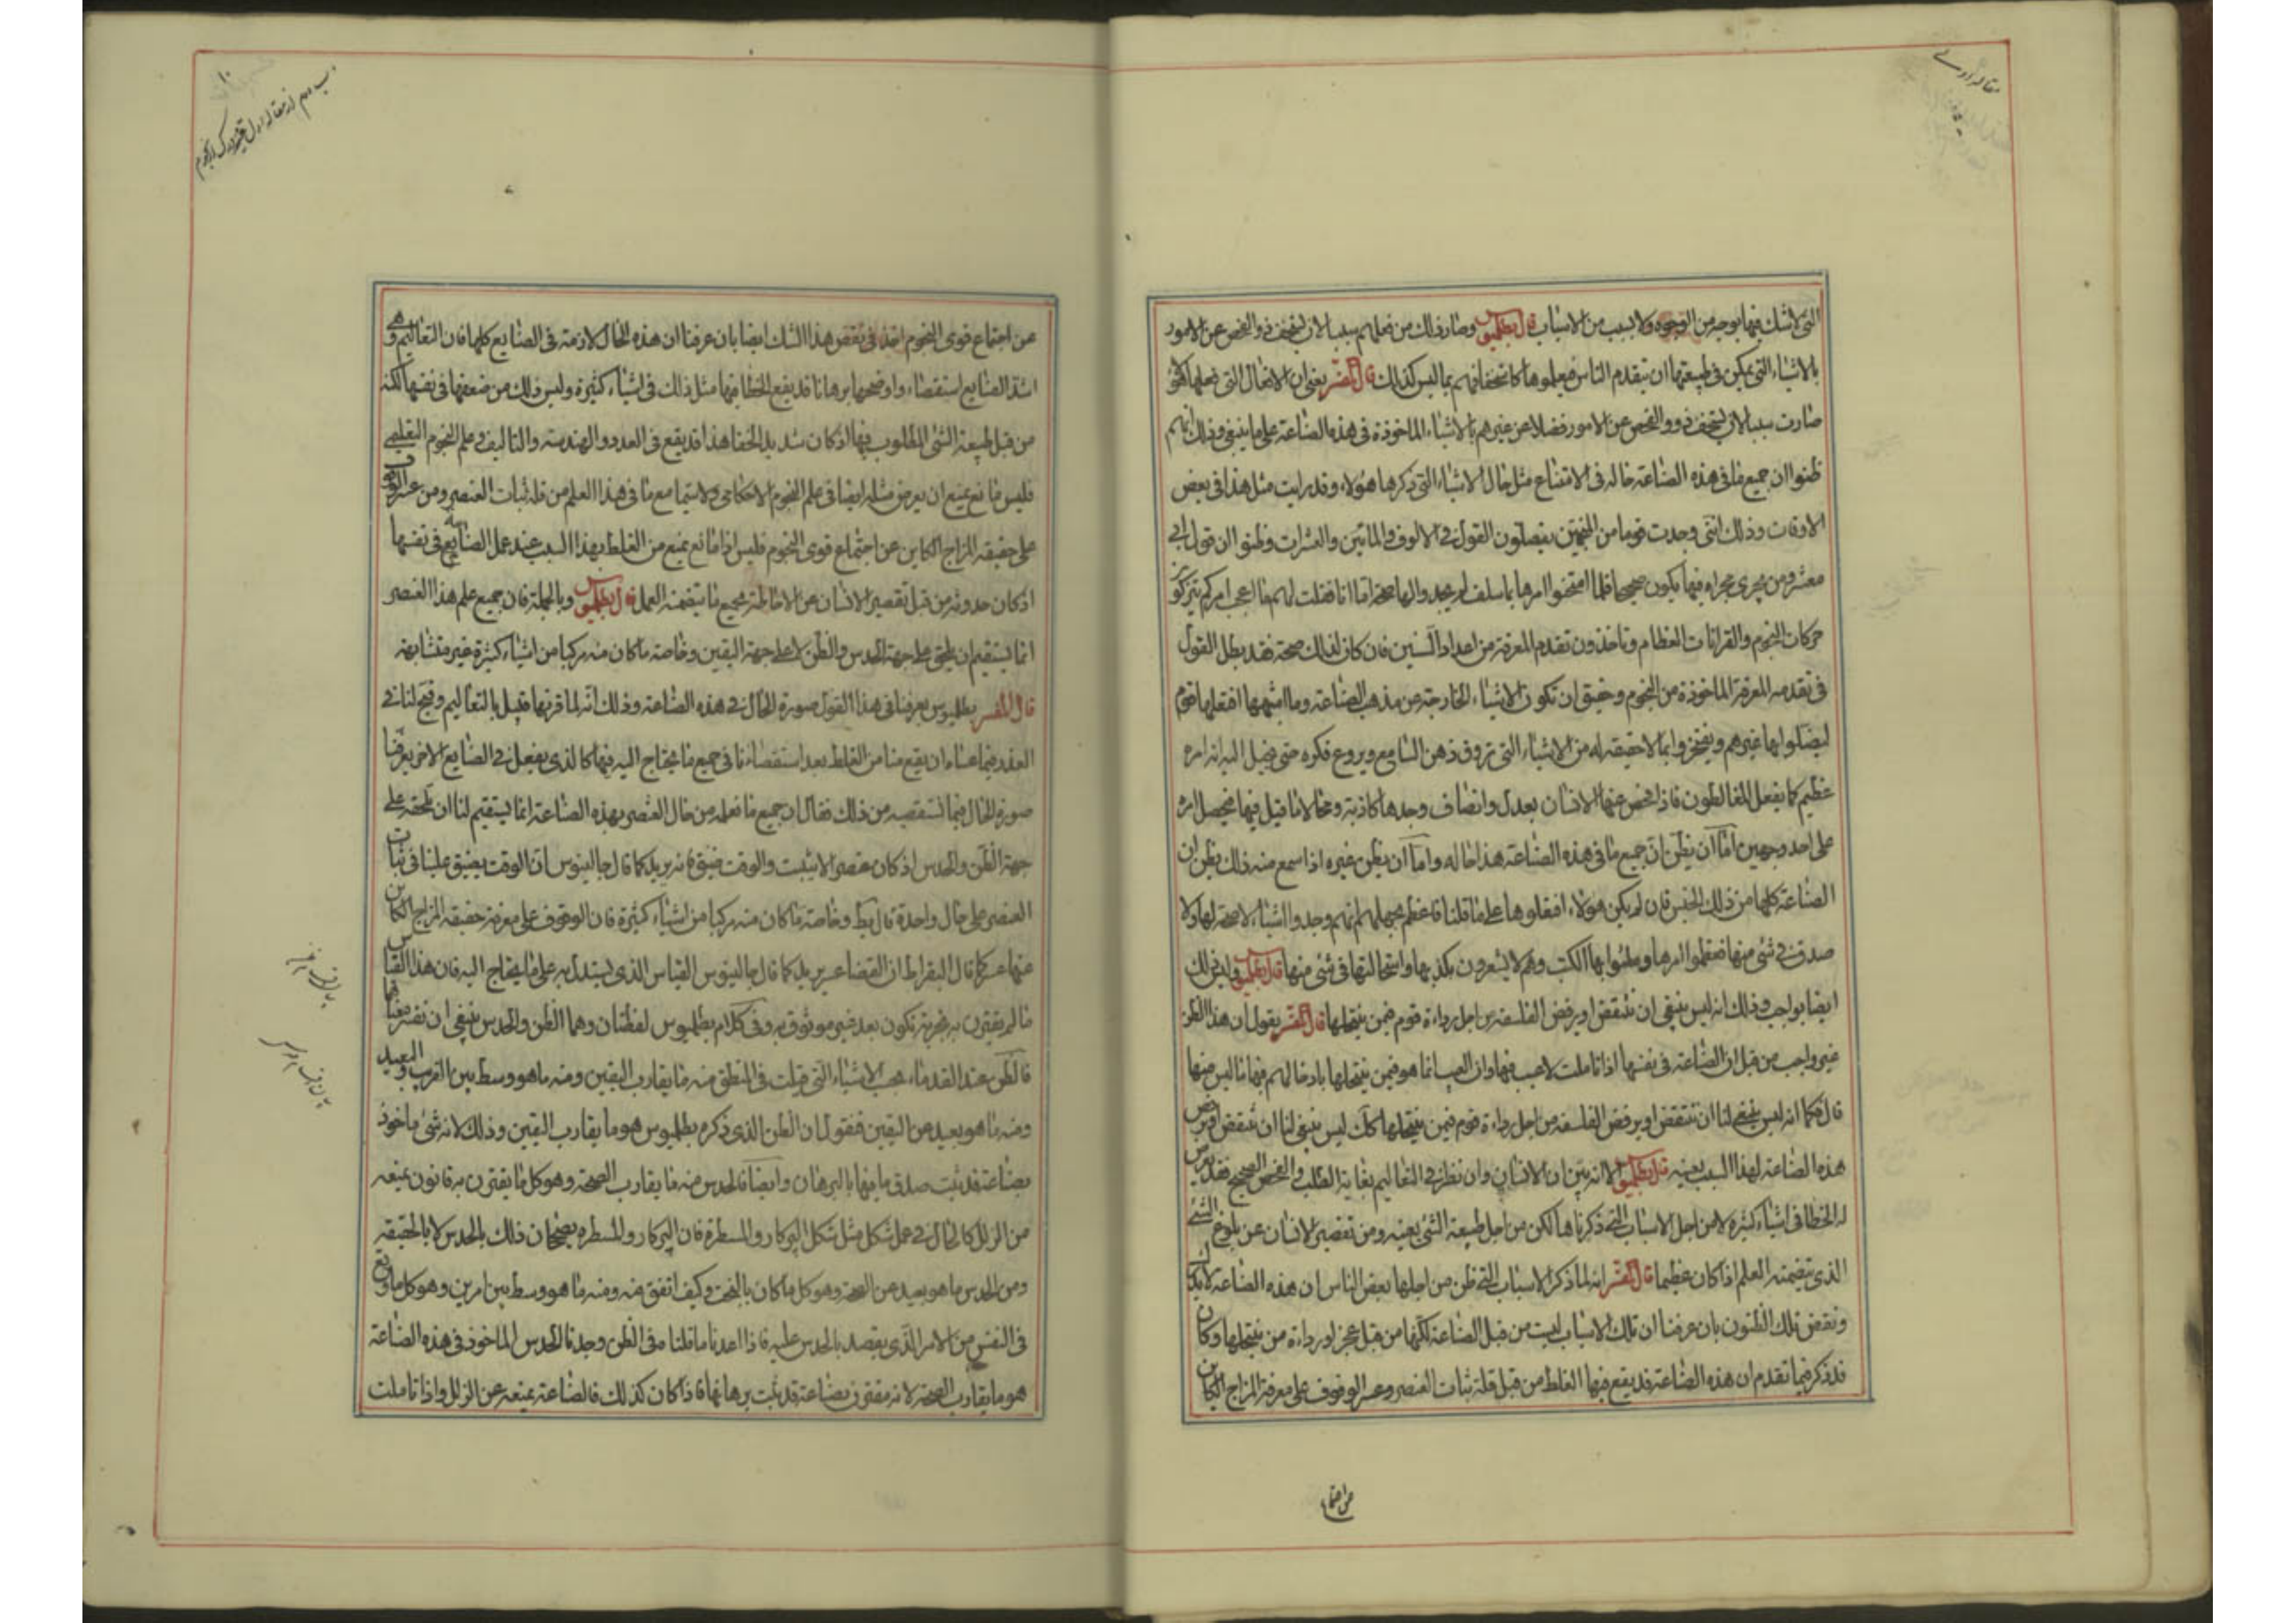 التى لا شك فيها بوجه من الوجوه ولا بسبب من الاسباب قال بطلميوس وصار ذلك من فعلهم سببا لان يستخف ذو والفحص عن الامور
بالاشياء التى يمكن فى طبيعتها ان يتقدم الناس فيعلموها كاستخفافهم بما ليس كذلك قال المفسر يعنى ان الافعال التى فعلها
صارت سببا لان يستخف ذوو الفحص عن الامور فضلا عن غيرهم بالاشياء الماخوذة فى هذه الصناعة على ما ينبغى وذلك انهم
ظنوا ان جميع ما فى هذه الصناعة حاله فى الامتناع مثل حال الاشياء التى ذكرها هؤلاء وقد رايت مثل هذا فى بعض
الاوقات وذلك اننى وجدت قوما من المنجمين يفصلون القول فى الالوف والمائين والعشرات وظنوا ان قول ابى
معشر ومن يجرى مجراه فيها يكون صحيحا فلما امتحنوا امرها بما سلف لم يجدوا لها صحة اما انا فقلت لهم ما اعجب امركم تتركون
حركات النجوم والقرانات العظام وتاخذون تقدم المعرفة من اعداد السنين فان كان لذلك صحة فقد بطل القول
فى تقدمه المعرفة الماخوذة من النجوم وخيق ان تكون الاشياء الخارجة عن مذهب الصناعة وما اشبهها افتعلها قوم
ليضلوا بها غيرهم ويفتخروا بما لا حقيقة له من الاشياء التى تروق ذهن السامع ويروع فكره حتى يخيل اليه انه امر
عظيم كما يفعل المغالطون فاذا فحص عنها الانسان بعدل وانصاف وجدها كاذبة ومحالا ما قيل فيها فيحصل امره
على احد وجهين اما ان يظن ان جميع ما فى هذه الصناعة هذا حاله واما ان يظن غيره اذا سمع منه ذلك يظن ان
الصناعة كلها من ذلك الجنس فان لم يكن هولاء افتعلوها على ما قلنا فاعظم بجهلهم انهم وجدوا اشياء لا صحة لها ولا
صدق فى شئ منها فنقلوا امرها وملئوا بها الكتب وهم لا يشعرون بكذبها واستحالتها فى شئ منها قال بطلميوس وليس ذلك
ايضا بواجب وذلك انه ليس ينبغى ان تنتقض او يرفض الفلسفة من اجل رداءة قوم فيمن ينتحلها قال المفسر يقول ان هذا الظن
غير واجب من قبل ان الصناعة فى نفسها اذا تاملت لا عيب فيها وان العيب انما هو فيمن ينتحلها بادخالهم فيها ما ليس منها
قال فكما انه ليس ينبغى لنا ان تنتقض او يرفض الفلسفة من اجل رداءة قوم فيمن ينتحلها كك ليس ينبغى لنا ان تنتقض او يرفض
هذه الصناعة لهذا السبب بعينه قال بطلميوس لانه بين ان الانسان وان نظر فى التعاليم بغاية الطلب والفحص الصحيح فقد يعرض
له الخطا فى اشياء كثيرة لا من اجل الاسباب التى ذكرناها لكن من اجل طبيعة الشئ بعينه ومن تقصير الانسان عن بلوغ الشئ
الذى يتضمنه العلم اذا كان عظيما قال المفسر انه لما ذكر الاسباب التى ظن من اجلها بعض الناس ان هذه الصناعة لا يدرك
ونقض تلك الظنون بان عرفنا ان تلك الاسباب ليست من قبل الصناعة لكنها من قبل عجز او رداءة من ينتحلها وكان
قد ذكر فيما تقدم ان هذه الصناعة قد يقع فيها الغلط من قبل قلة ثبات العنصر وعسر الوقوف على معرفة المزاج الكاين
عن اجتماع
عن اجتماع قوى النجوم اخذ فى نقض هذا الشك ايضا بان عرفنا ان هذه الحال لازمة فى الصنايع كلها فان التعاليم وهى
اشد الصنايع استقصاء واوضحها برهانا قد يقع الخطا فيها مثل ذلك فى اشياء كثيرة وليس ذلك من ضعفها فى نفسها لكنه
من قبل طبيعة الشئ المطلوب فيها اذ كان شديد الخفا هذا قد يقع فى العدد والهندسة والتاليف وعلم النجوم التعليمى
فليس مانع يمنع ان يعرض مثله ايضا فى علم النجوم الاحكامى ولا سيما مع ما فى هذا العلم من قلة ثبات العنصر ومن عسر الوقوف
على حقيقه المزاج الكاين عن اجتماع قوى النجوم فليس اذا مانع يمنع من الغلط بهذا السبب عند عمل الصنايع فى نفسها
اذ كان حدوثه من قبل تقصير الانسان عن الاحاطة بجميع ما يتضمنه العمل قال بطلميوس وبالجملة فان جميع علم هذا العنصر
انما يستقيم ان يلحق على جهة الحدس والظن لا على جهة اليقين وخاصة ما كان منه مركبا من اشياء كثيرة غير متشابهة
قال المفسر بطلميوس يعرفنا فى هذا القول صورة الحال فى هذه الصناعة وذلك انه لما قرنها قبل بالتعاليم وفتح لنا فى
العذر فيما عساه ان يقع منا من الغلط بعد استقصاءنا فى جميع ما يحتاج اليه فيها كالذى يفعل فى الصنايع الاخر يعرفنا
صورة الحال فيما نستقصيه من ذلك فقال ان جميع ما نعلمه من حال العنصر بهذه الصناعة انما يستقيم لنا ان نلحقه على
جهة الظن والحدس اذ كان عنصرا لا يثبت والوقت ضيق فانه يريد كما قال جالينوس ان الوقت يضيق علينا فى ثبات
العنصر على حال واحدة قال بط وخاصة ما كان منه مركبا من اشياء كثيرة فان الوقوف على معرفة حقيقه المزاج الكاين
عنها عسر كما قال البقراط ان القضا عسر يريد كما قال جالينوس القياس الذى يستدل به على ما يحتاج اليه فان هذا القياس
ما لم يقترن به تجربة تكون بعد غير موثوق به وفى كلام بطلميوس لفظتان وهما الظن والحدس ينبغى ان نفسر معناهما
فالظن عند القدماء بحسب الاشياء التى قيلت فى المنطق منه ما يقارب اليقين ومنه ما هو وسط بين القريب والبعيد
ومنه ما هو بعيد عن اليقين فنقول ان الظن الذى ذكره بطلميوس هو ما يقارب اليقين وذلك لانه شئ ماخوذ
بصناعة قد ثبت صدق ما فيها بالبرهان وايضا فالحدس منه ما يقارب الصحة وهو كل ما يقترن به قانون يمنعه
من الزلل كالحال فى عمل شكل مثل شكل البركار والمسطرة فان البركار والمسطرة يصححان ذلك بالحدس لا بالحقيقه
ومن الحدس ما هو بعيد عن الصحة وهو كل ما كان بالبخت وكيف اتفق منه ومنه ما هو وسط بين امرين وهو كل ما وقع
فى النفس من الامر الذى يقصد بالحدس عليه فاذا اعدنا ما قلنا فى الظن وجدنا الحدس الماخوذ فى هذه الصناعة
هو ما يقارب الصحة لانه مقترن بصناعة قد ثبت برهانها فاذا كان كذلك فالصناعة يمنعه عن الزلل واذا تاملت